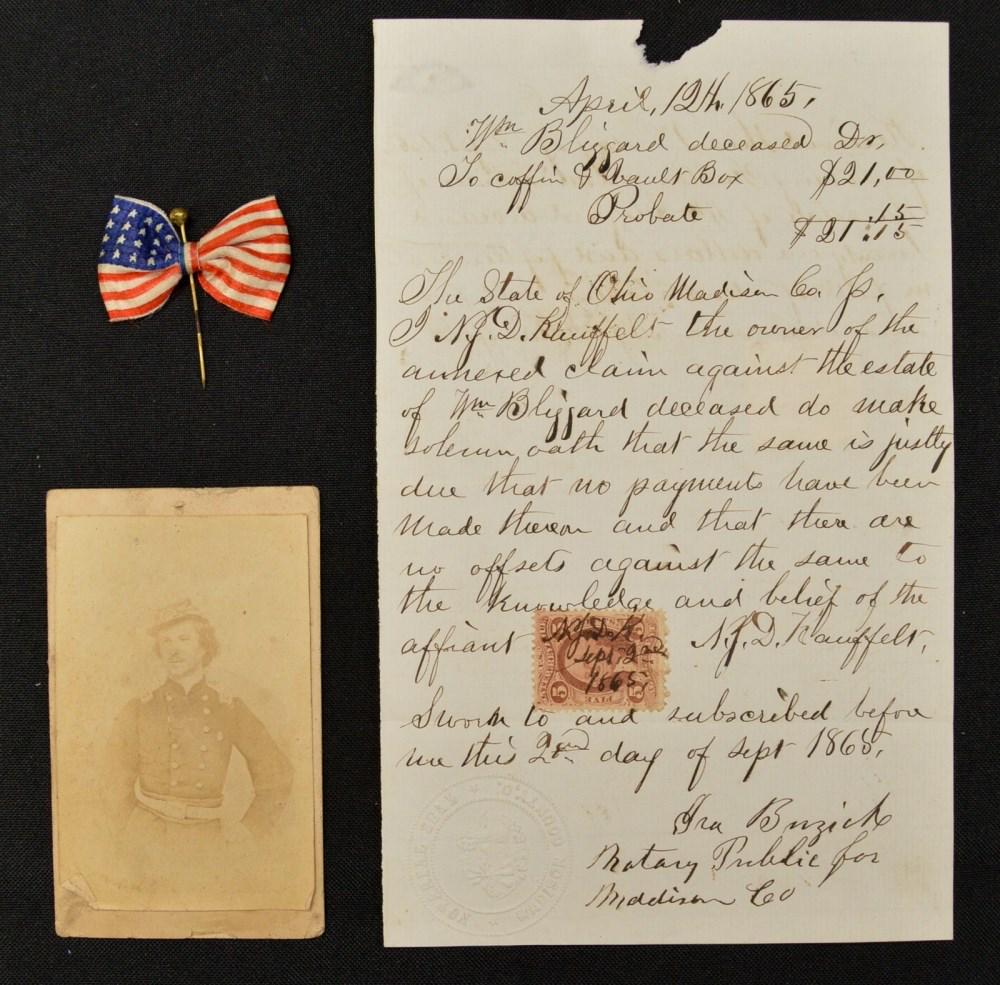 April, 12th, 1865,
Wm Blizzard deceased Dr,
To coffin & Vault Box $21,00
Probate 15
$21.15
The State of Ohio Madison Co. Ss.
I N.J.D. Kauffelt the owner of the
annexed claim against the estate
of Wm Blizzard deceased do make
solemn oath that the same is justly
due that no payments have been
made thereon and that there are
no offsets against the same to
the knowledge and belief of the
affiant N.J.D. Kauffelt.
N.J.D.K
Sept. 2nd
1865.
5 5
FIVE
Sworn to and subscribed before
me this 2nd day of Sept 1865.
Ira Buzick
Notary Public for
Maddison Co